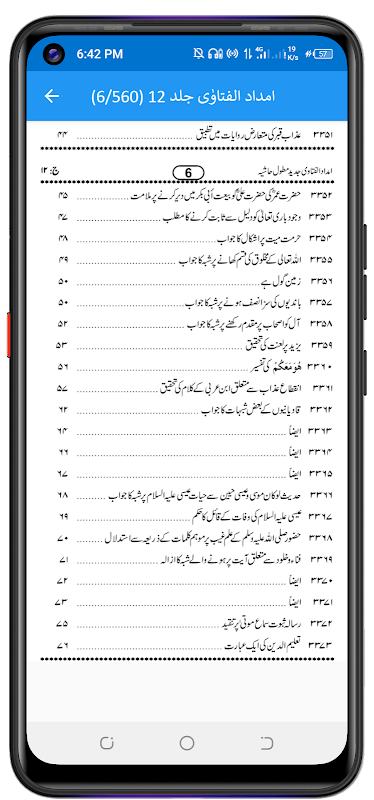 6:42 PM 4G 19 K/s 57
امداد الفتاوٰی جلد 12 (6/560)
۳۳۵۱ عذاب قبر کی متعارض روایات میں تطبیق ۴۴
امداد الفتاوی جدید مطول حاشیہ 6 ج: ۱۲
۳۳۵۲ حضرت عمرؓ کی حضرت علیؓ کو بیعت ابی بکر میں دیر کرنے پر ملامت ۴۵
۳۳۵۳ وجود باری تعالیٰ کو دلیل سے ثابت کرنے کا مطلب ۴۷
۳۳۵۴ حرمت میت پر اشکال کا جواب ۴۸
۳۳۵۵ اللہ تعالی کے مخلوق کی قسم کھانے پر شبہ کا جواب ۴۹
۳۳۵۶ زمین گول ہے ۵۰
۳۳۵۷ باندیوں کی سزا نصف ہونے پر شبہ کا جواب ۵۰
۳۳۵۸ آل کو اصحاب پر مقدم رکھنے پر شبہ کا جواب ۵۲
۳۳۵۹ یزید پر لعنت کی تحقیق ۵۳
۳۳۶۰ هُوَ مَعَكُمْ کی تفسیر ۵۶
۳۳۶۱ انقطاع عذاب سے متعلق ابن عربی کے کلام کی تحقیق ۵۷
۳۳۶۲ قادیانیوں کے بعض شبہات کا جواب ۶۲
۳۳۶۳ ایضاً ۶۴
۳۳۶۴ ایضاً ۶۶
۳۳۶۵ ایضاً ۶۷
۳۳۶۶ حدیث لوکان موسی وعیسی حیین سے حیات عیسی علیہ السلام پر شبہ کا جواب ۶۸
۳۳۶۷ عیسی علیہ السلام کی وفات کے قائل کا حکم ۶۹
۳۳۶۸ حضور صلی اللہ علیہ وسلم کے علم غیب پر موہم کلمات کے ذریعہ سے استدلال ۷۰
۳۳۶۹ فناء وخلود سے متعلق آیت پر ہونے والے شبہ کا ازالہ ۷۱
۳۳۷۰ ایضاً ۷۲
۳۳۷۱ ایضاً ۷۳
۳۳۷۲ رسالہ ثبوت سماع موتی پر تنقید ۷۵
۳۳۷۳ تعلیم الدین کی ایک عبارت ۷۶